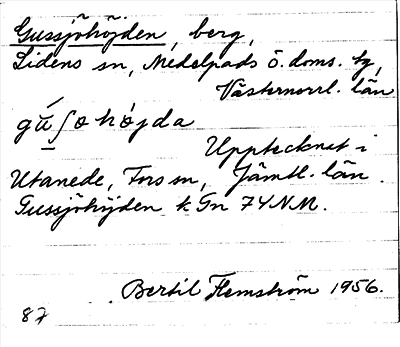 Gussjöhöjden, berg,
Lidens sn, Medelpads ö. doms. tg,
Västernorrl. län
Upptecknat i
Utanede, Fors sn, Jämtl. län.
Gussjöhöjden k Gn 74NM.
Bertil Flemström 1956.
87